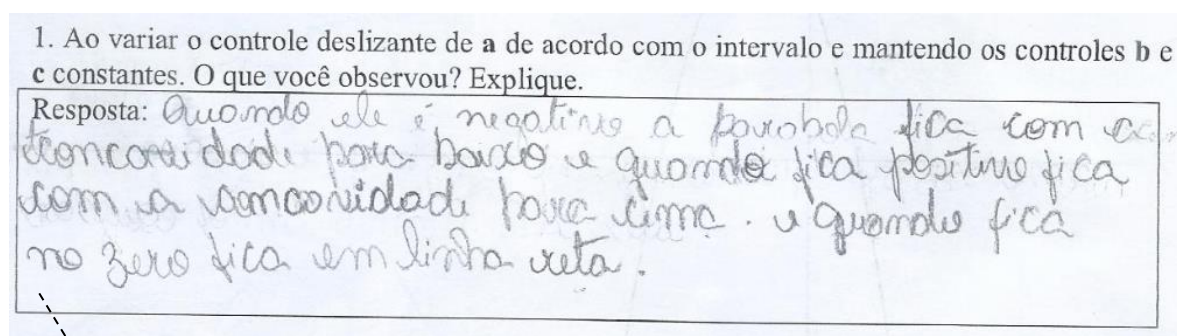 1. Ao variar o controle deslizante de a de acordo com o intervalo e mantendo os controles b e
c constantes. O que você observou? Explique.
Resposta: Quando ele é negativo a parabola fica com a
concavidade para baixo e quando fica positivo fica
com a concavidade para cima. e quando fica
no zero fica em linha reta.